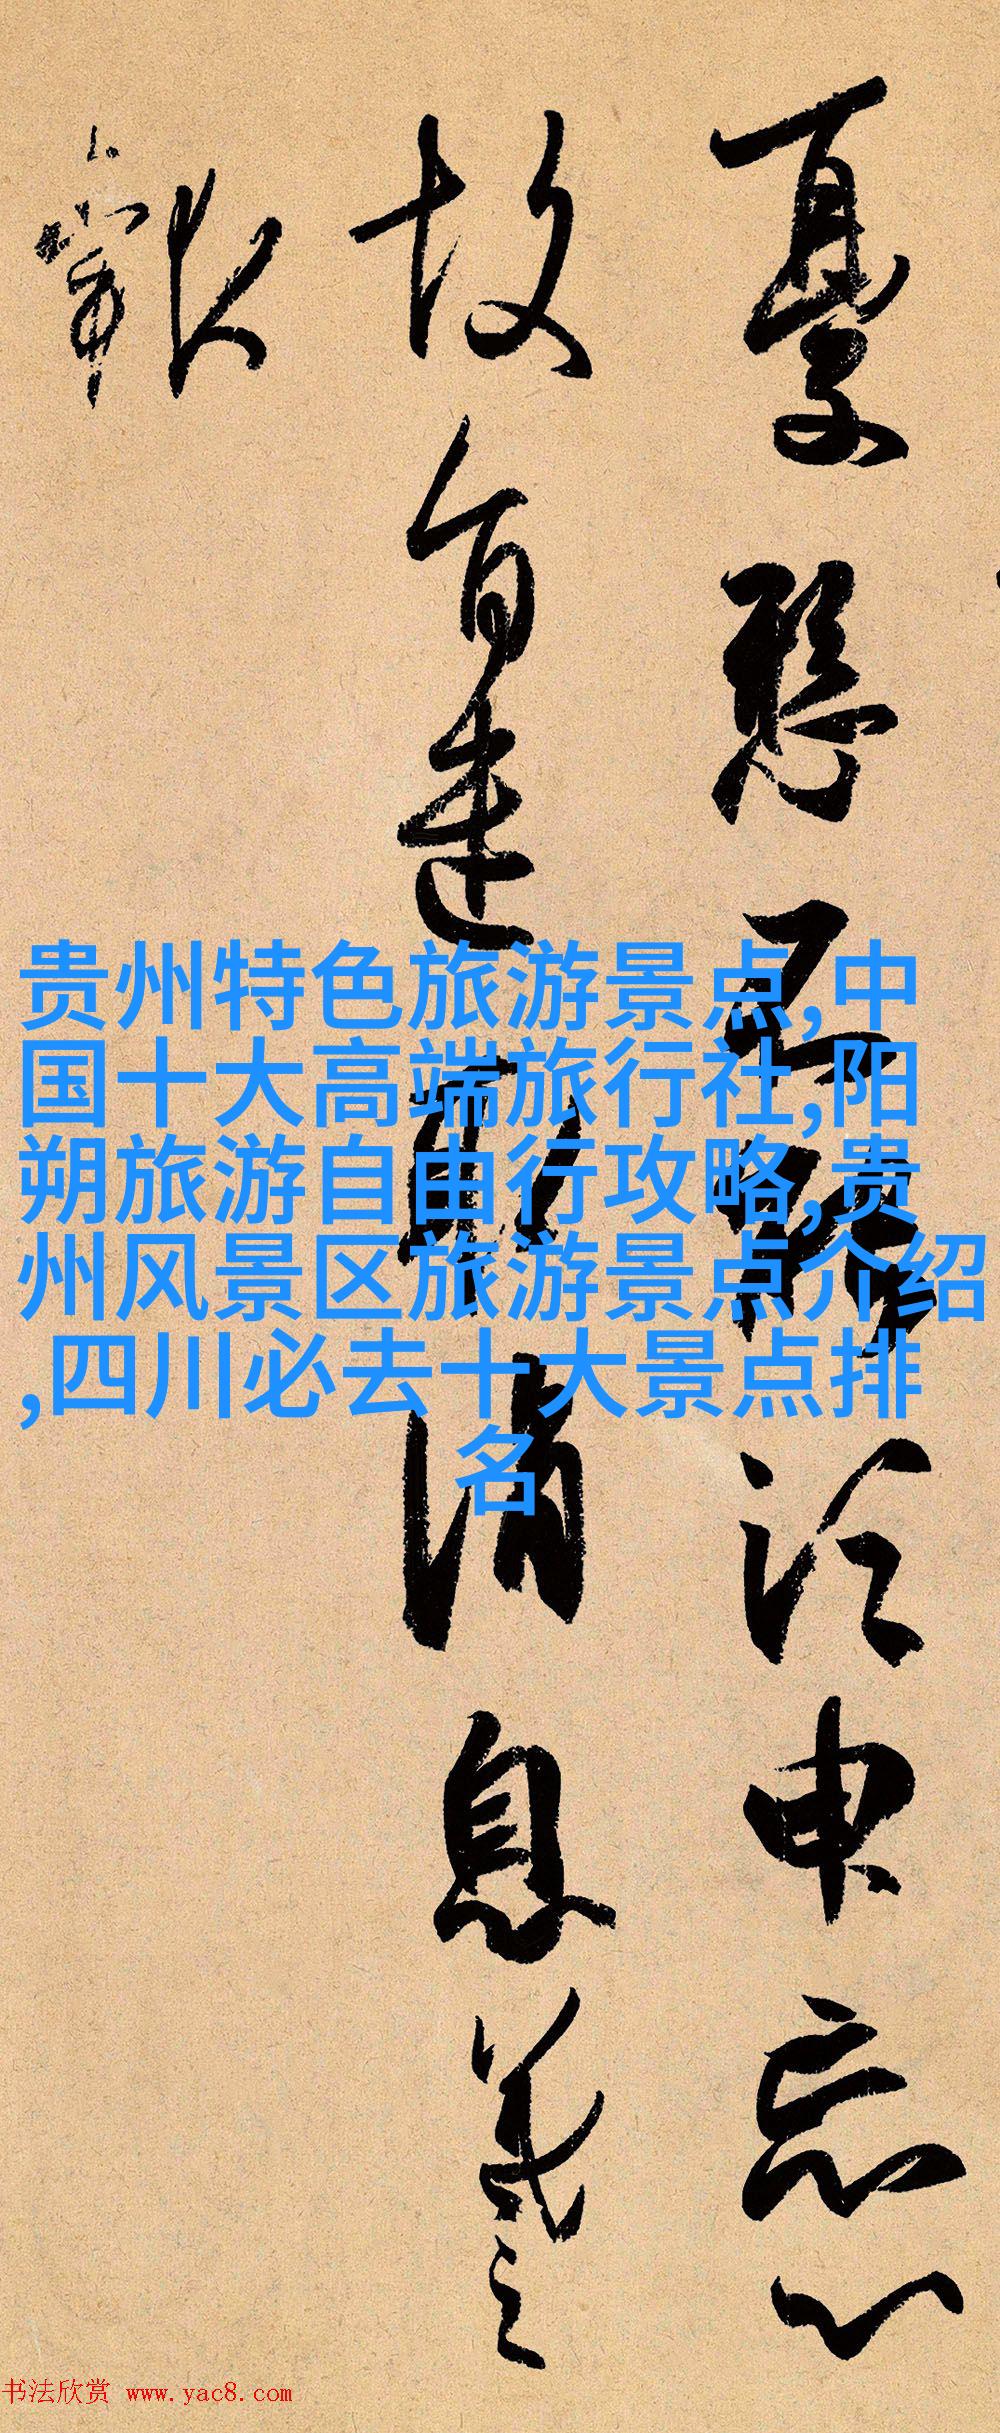 憂懸不能須臾忘心
故旨遣取消息羲之
報
贵州特色旅游景点,中
国十大高端旅行社,阳
朔旅游自由行攻略,贵
州风景区旅游景点介绍
,四川必去十大景点排
名
书法欣赏 www.yac8.com